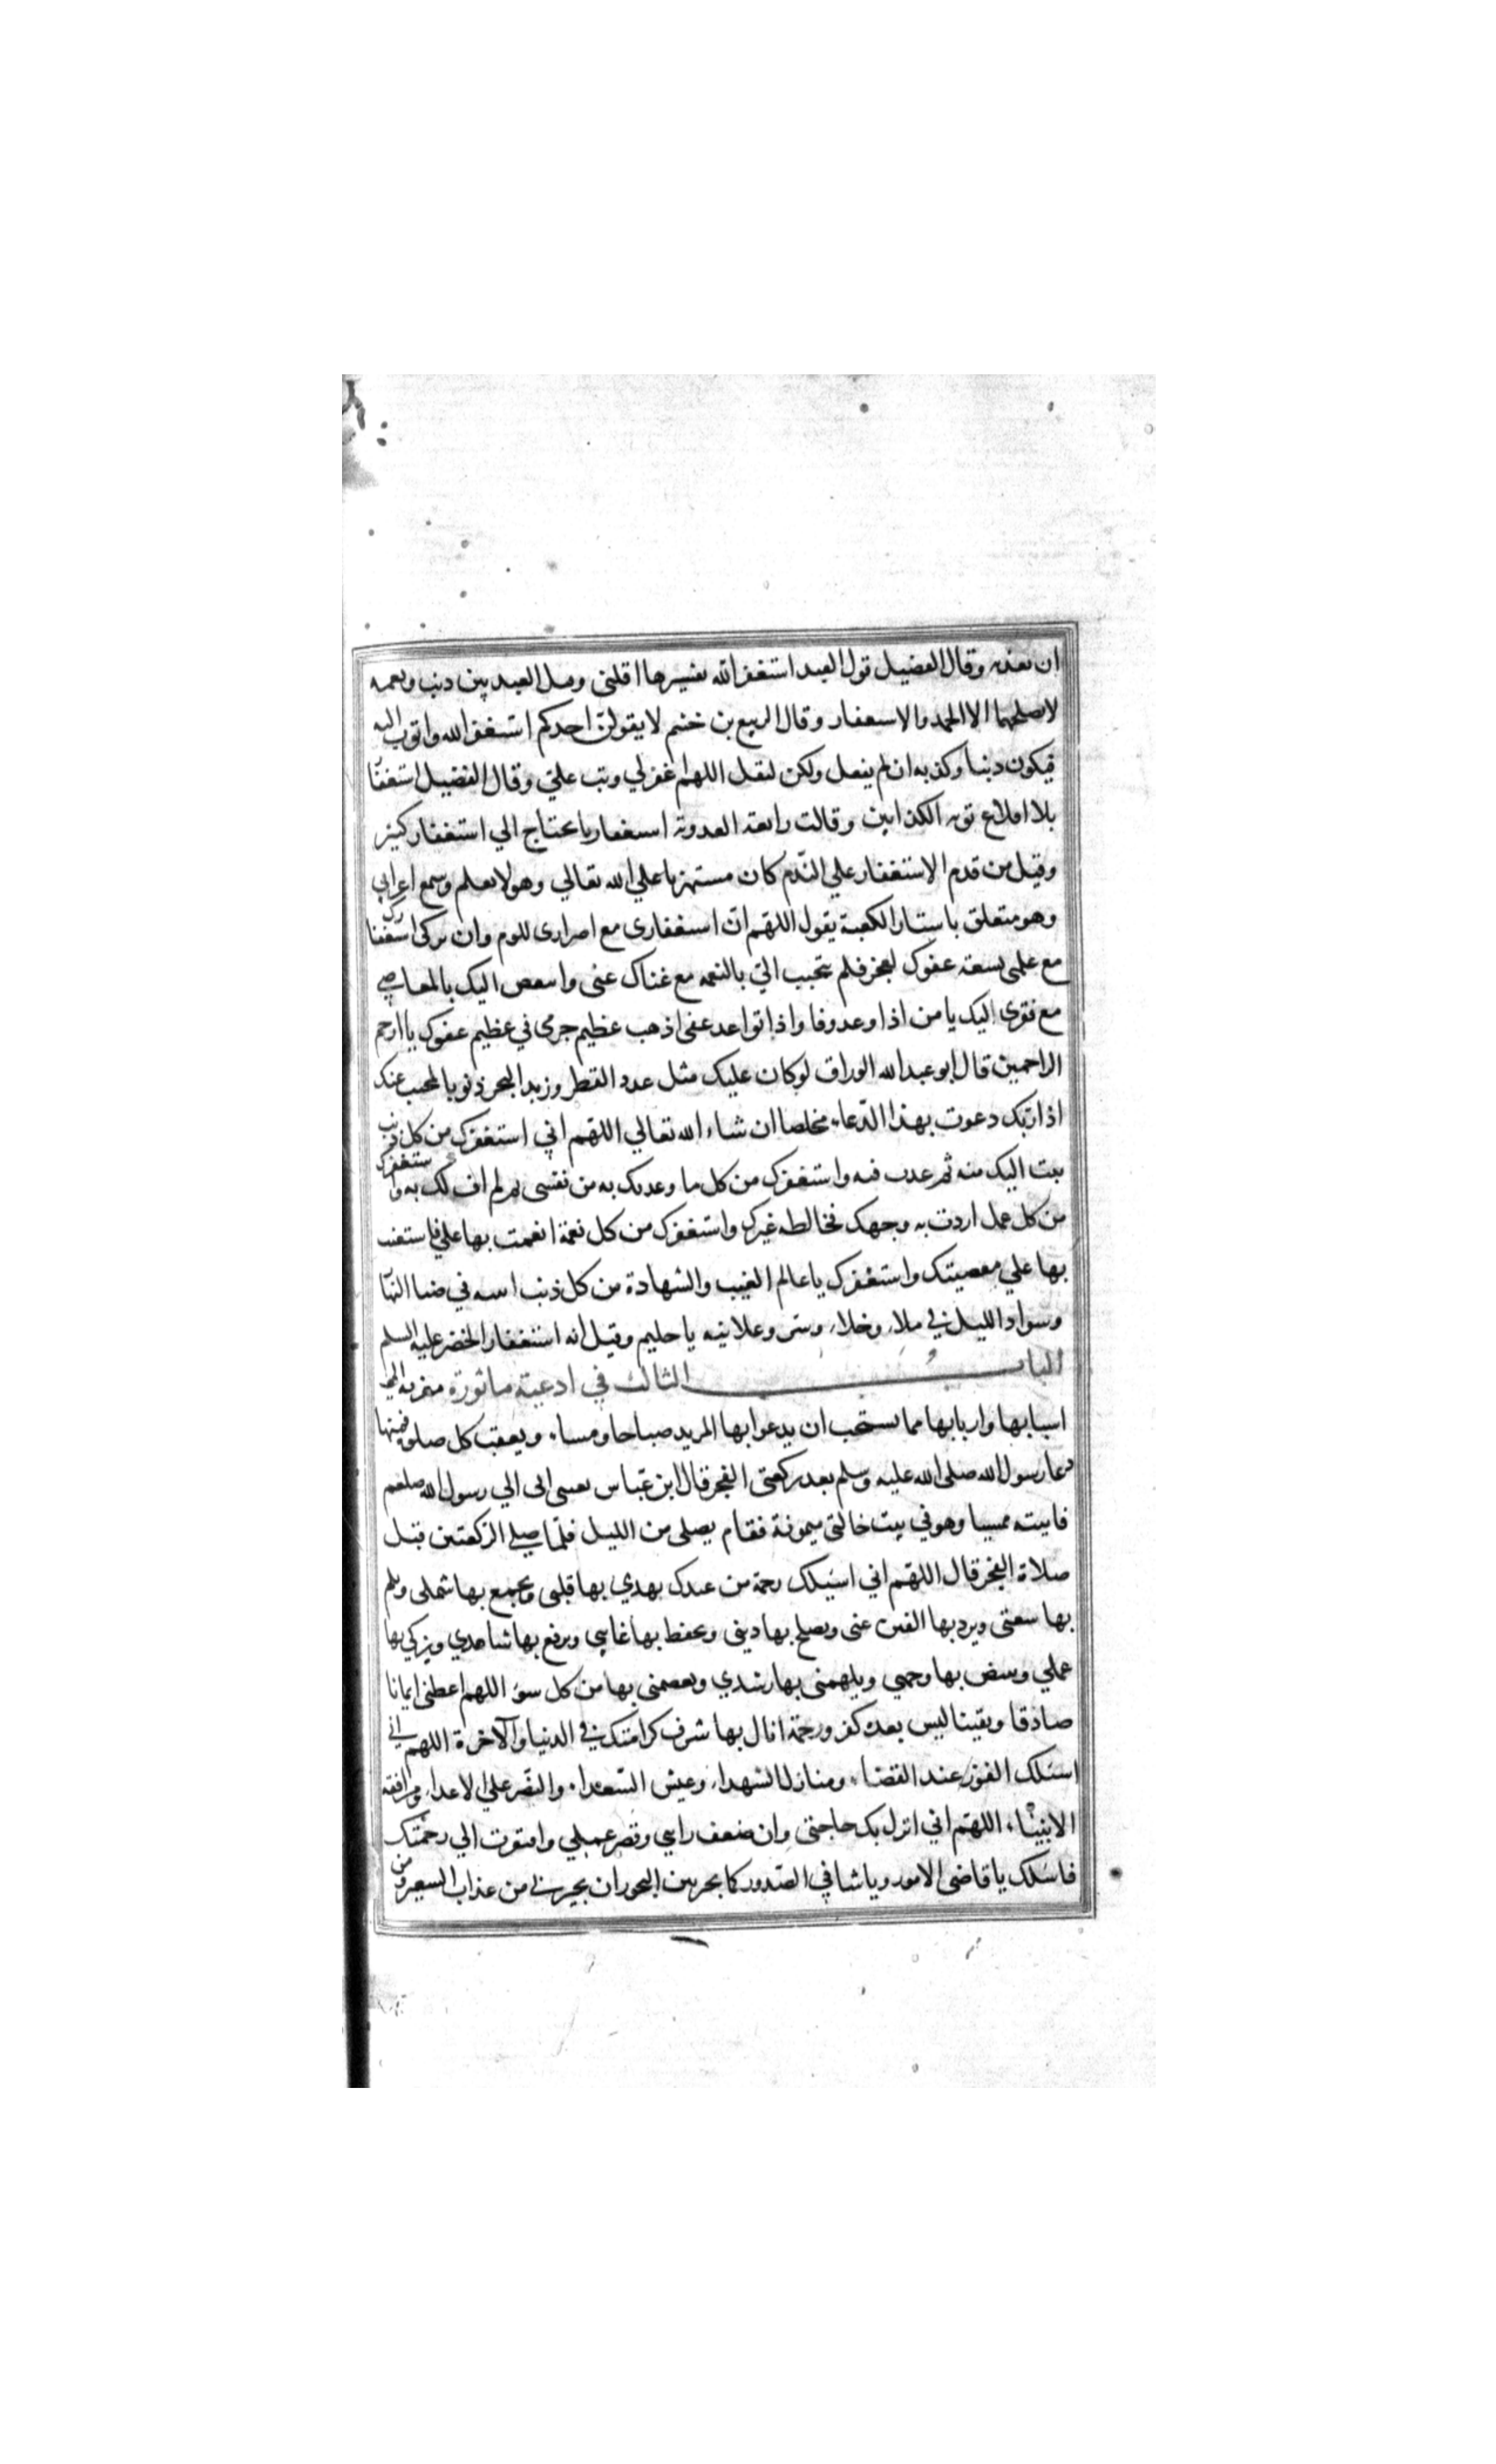 ان يعذبه وقال الفضيل قول العبد استغفر الله تفسيرها اقلنى وقيل العبد بين ذنب ونعمة
لا يصلحهما الا الحمد والاستغفار وقال الربيع بن خثيم لا يقولن احدكم استغفر الله واتوب اليه
فيكون ذنبا وكذبه ان لم يفعل ولكن ليقل اللهم اغفر لي وتب علي وقال الفضيل استغفار
بلا اقلاع توبه الكذابين وقالت رابعة العدوية استغفارنا يحتاج الي استغفار كثير
وقيل من قدم الاستغفار علي الندم كان مستهزيا علي الله تعالي وهو لا يعلم وسمع اعرابي
وهو متعلق باستار الكعبة يقول اللهم ان استغفارى مع اصرارى للوم وان تركى استغفارك
مع علمى بسعة عفوك لعجز فلم تتحبب الي بالنعمه مع غناك عنى واتبغض اليك بالمعاصي
مع فقرى اليك يا من اذا وعد وفا واذا تواعد عفى اذهب عظيم جرمى في عظيم عفوك يا ارحم
الراحمين قال ابو عبد الله الوراق لو كان عليك مثل عدد القطر وزبد البحر ذنوبا لمحيت عنك
اذا ربك دعوت بهذا الدعاء مخلصا ان شاء الله تعالي اللهم اني استغفرك من كل ذنب
تبت اليك منه ثم عدت فيه واستغفرك من كل ما وعدتك به من نفسى ثم لم اف لك به واستغفرك
من كل عمل اردت به وجهك فخالطه غيرك واستغفرك من كل نعمة انعمت بها علي فاستعنت
بها علي معصيتك واستغفرك يا عالم الغيب والشهادة من كل ذنب اتيته في ضيا النهار
وسواد الليل في ملاء وخلاء وسر وعلانيه يا حليم وقيل انه استغفار الخضر عليه السلم
الباب الثالث في ادعية ماثورة معزية الي
اسبابها واربابها مما يستحب ان يدعوا بها المريد صباحا ومساء وبعقب كل صلوة فمنها
دعا رسول الله صلى الله عليه وسلم بعد ركعتى الفجر قال ابن عباس بعثنى ابى الي رسول الله صلعم
فاتيته ممسيا وهو في بيت خالتى ميمونة فقام يصلى من الليل فلما صلي الركعتين قبل
صلاة الفجر قال اللهم اني اسئلك رحمة من عندك تهدي بها قلبى وتجمع بها شملى وتلم
بها شعثى وترد بها الفتن عنى وتصلح بها دينى وتحفظ بها غايبي وترفع بها شاهدي وتزكي بها
عملي وتبيض بها وجهي وتلهمنى بها رشدي وتعصمنى بها من كل سوء اللهم اعطنى ايمانا
صادقا ويقينا ليس بعده كفر ورحمة انال بها شرف كرامتك في الدنيا والآخرة اللهم اني
اسئلك الفوز عند القضاء ومنازل الشهداء وعيش السعداء والنصر علي الاعداء ومرافقة
الانبياء اللهم اني انزل بك حاجتى وان ضعف رايي وقصر عملي وافتقرت الي رحمتك
فاسئلك يا قاضى الامور ويا شافي الصدور كما تجير بين البحور ان تجيرني من عذاب السعير ومن